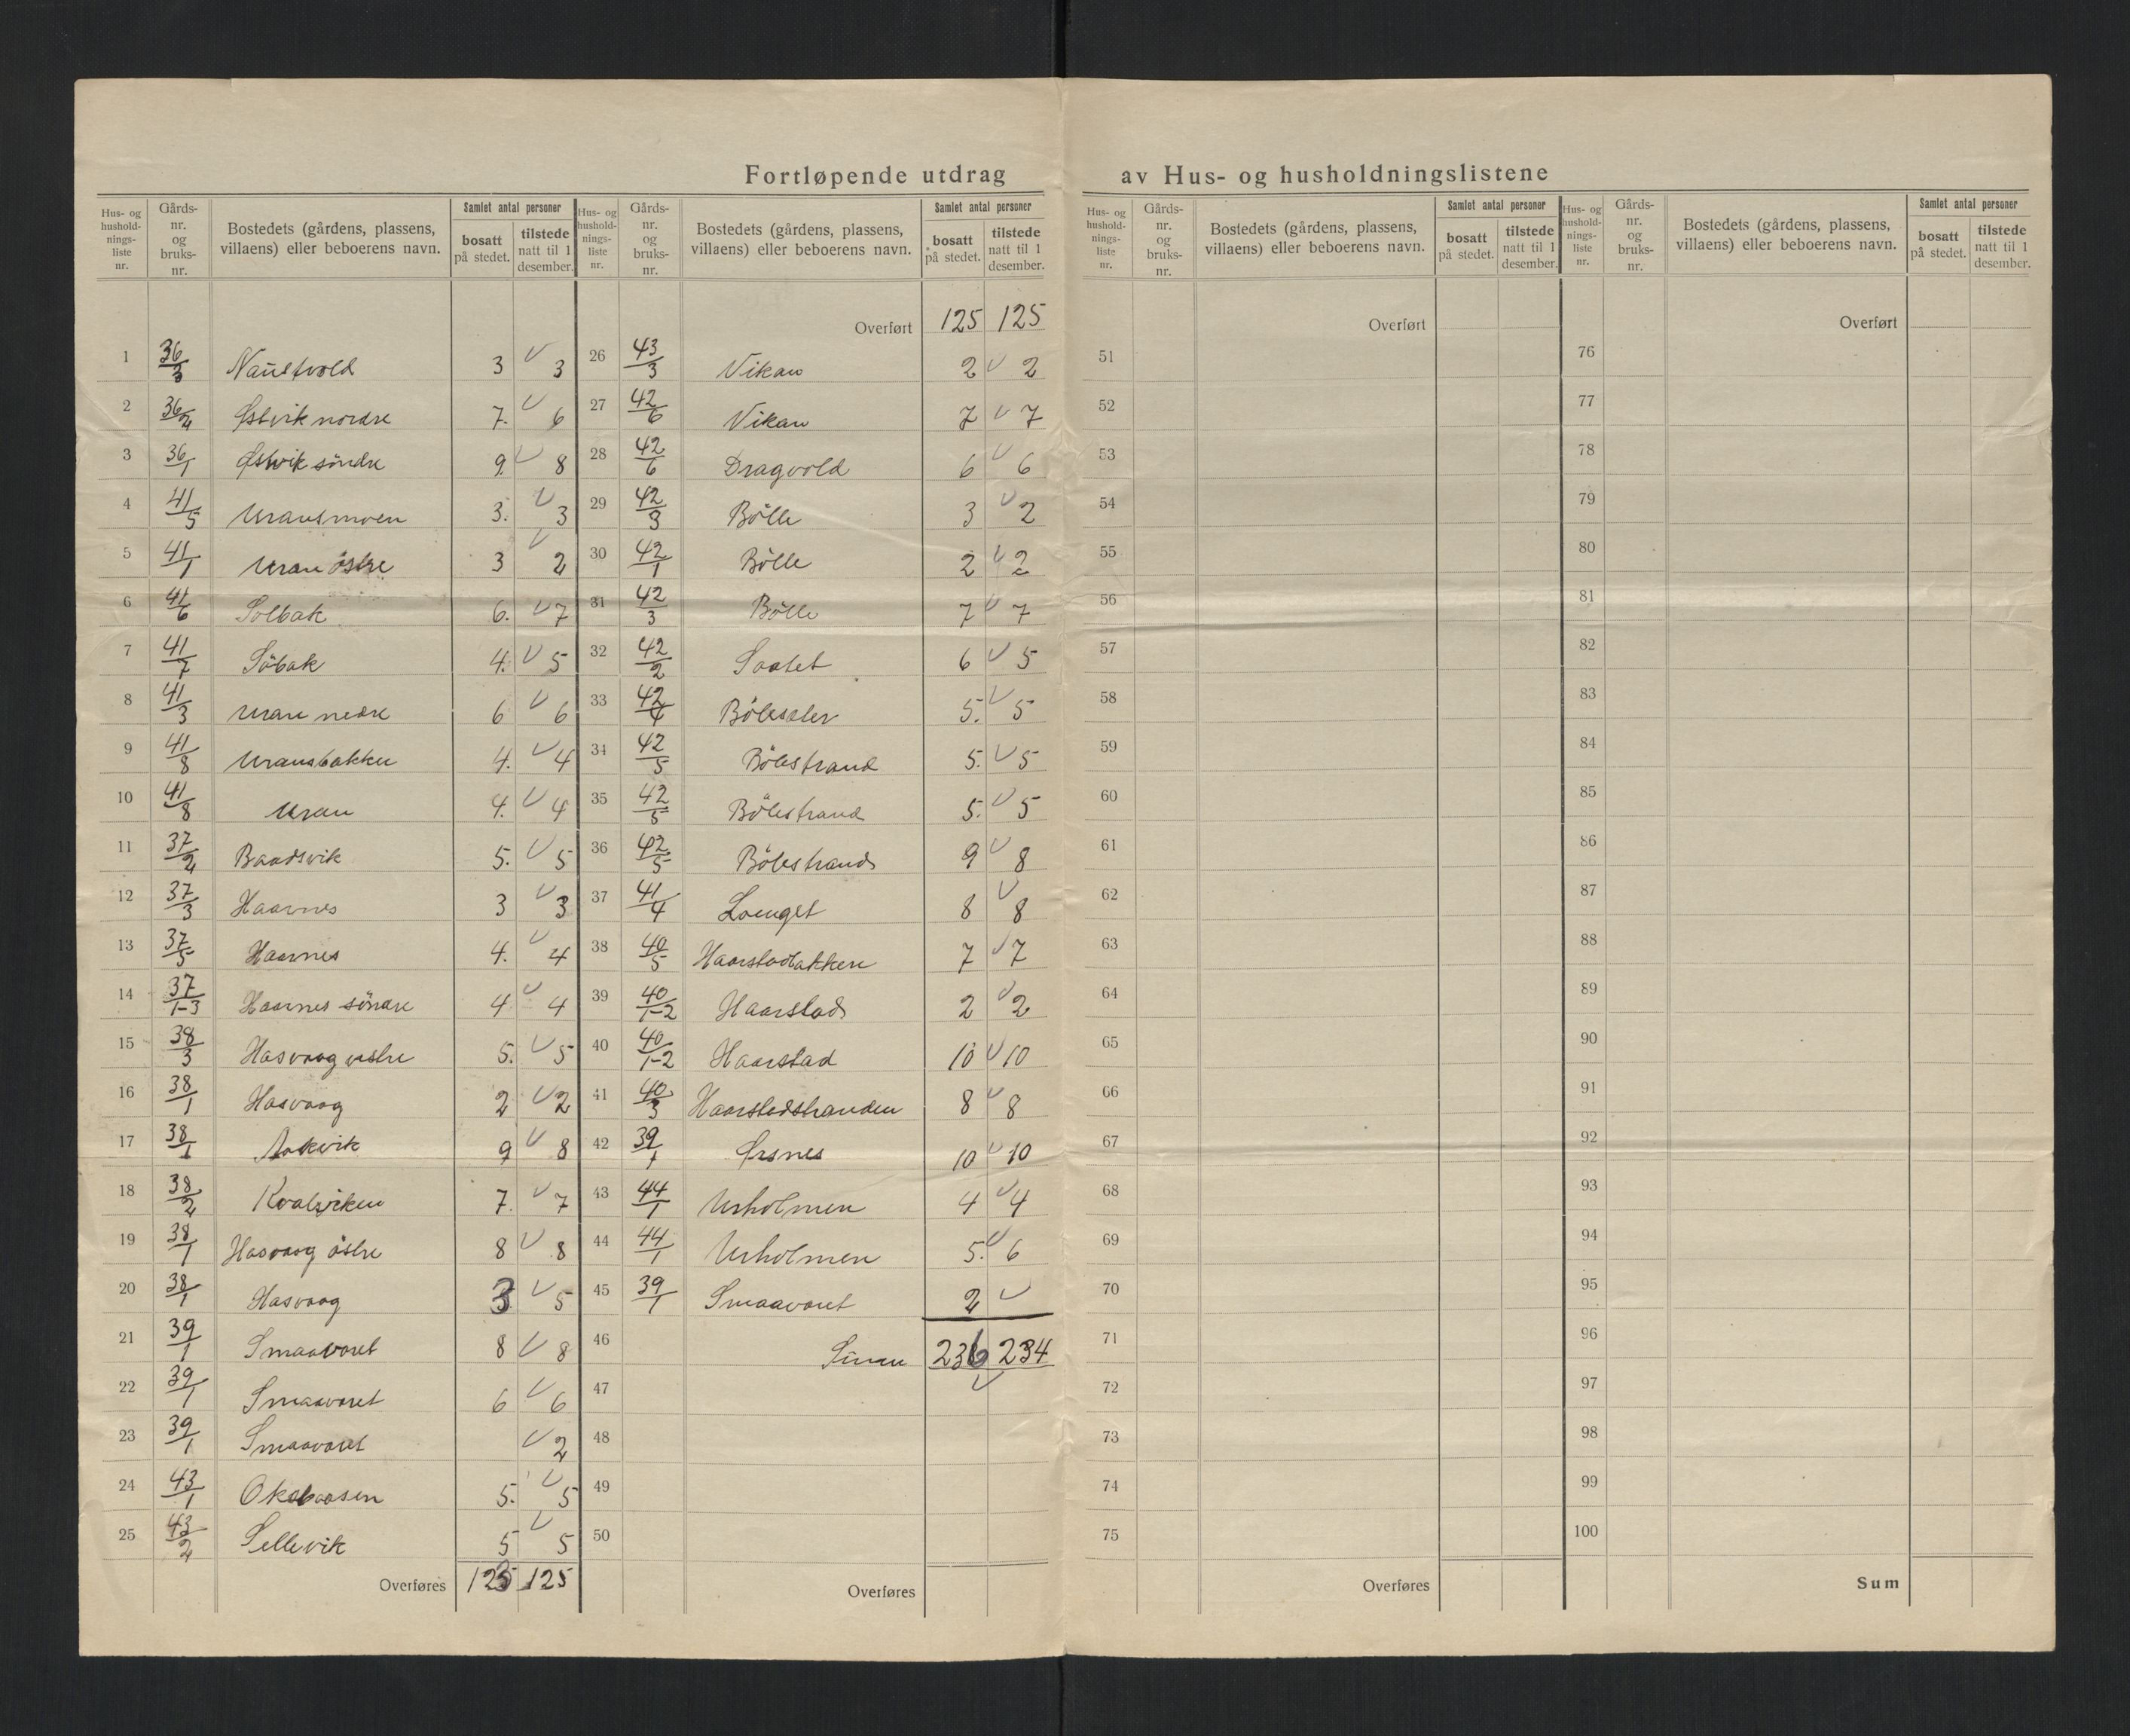 Fortløpende utdrag av Hus- og husholdningslistene
Hus- og hushold- nings- liste nr. | Gårds- nr. og bruks- nr. | Bostedets (gårdens, plassens, villaens) eller beboerens navn. | Samlet antal personer | bosatt på stedet. | tilstede natt til 1 desember.
1 36/3 Naustvold 3 3
2 36/2 Østvik nordre 7. 6
3 36/1 Østvik söndre 9. 8
4 41/5 Uransmoen 3. 3
5 41/1 Uran östre 3 2
6 41/6 Solbak 6. 7
7 41/7 Söbak 4. 5
8 41/3 Uran nedre 6 6
9 41/8 Uransbakken 4. 4
10 41/8 Uran 4. 4
11 37/2 Baadsvik 5. 5
12 37/3 Haarnes 3 3
13 37/5 Haarnes 4. 4
14 37/1-3 Haarnes söndre 4 4
15 38/3 Hasvaag vestre 5. 5
16 38/1 Hasvaag 2 2
17 38/1 Aakvik 9 8
18 38/2 Kvalviken 7. 7
19 38/1 Hasvaag östre 8 8
20 38/1 Hasvaag 3 5
21 39/1 Smaaværet 8 8
22 39/1 Smaaværet 6 6
23 39/1 Smaaværet 2
24 43/1 Oksbaasen 5. 5
25 43/2 Sellevik 5 5
Overføres 123 125
Hus- og hushold- nings- liste nr. | Gårds- nr. og bruks- nr. | Bostedets (gårdens, plassens, villaens) eller beboerens navn. | Samlet antal personer | bosatt på stedet. | tilstede natt til 1 desember.
Overført 125 125
26 43/3 Vikan 2 2
27 42/6 Vikan 7 7
28 42/6 Dragvold 6 6
29 42/3 Bölle 3 2
30 42/1 Bölle 2 2
31 42/3 Bölle 7 7
32 42/2 6 5
33 42/4 5. 5
34 42/5 Bölestrand 5. 5
35 42/5 Bölestrand 5. 5
36 42/5 Bölestrand 9 8
37 41/4 Loenget 8 8
38 40/5 Haarstadbakken 7 7
39 40/1-2 Haarstad 2 2
40 40/1-2 Haarstad 10 10
41 40/3 Haarstadstranden 8 8
42 39/1 Ørsnes 10 10
43 44/1 Urholmen 4 4
44 44/1 Urholmen 5. 6
45 39/1 Smaaværet 2
46 Sum 236 234
47
48
49
50
Overføres
Hus- og hushold- nings- liste nr. | Gårds- nr. og bruks- nr. | Bostedets (gårdens, plassens, villaens) eller beboerens navn. | Samlet antal personer | bosatt på stedet. | tilstede natt til 1 desember.
Overført
51
52
53
54
55
56
57
58
59
60
61
62
63
64
65
66
67
68
69
70
71
72
73
74
75
Overføres
Hus- og hushold- nings- liste nr. | Gårds- nr. og bruks- nr. | Bostedets (gårdens, plassens, villaens) eller beboerens navn. | Samlet antal personer | bosatt på stedet. | tilstede natt til 1 desember.
Overført
76
77
78
79
80
81
82
83
84
85
86
87
88
89
90
91
92
93
94
95
96
97
98
99
100
Sum